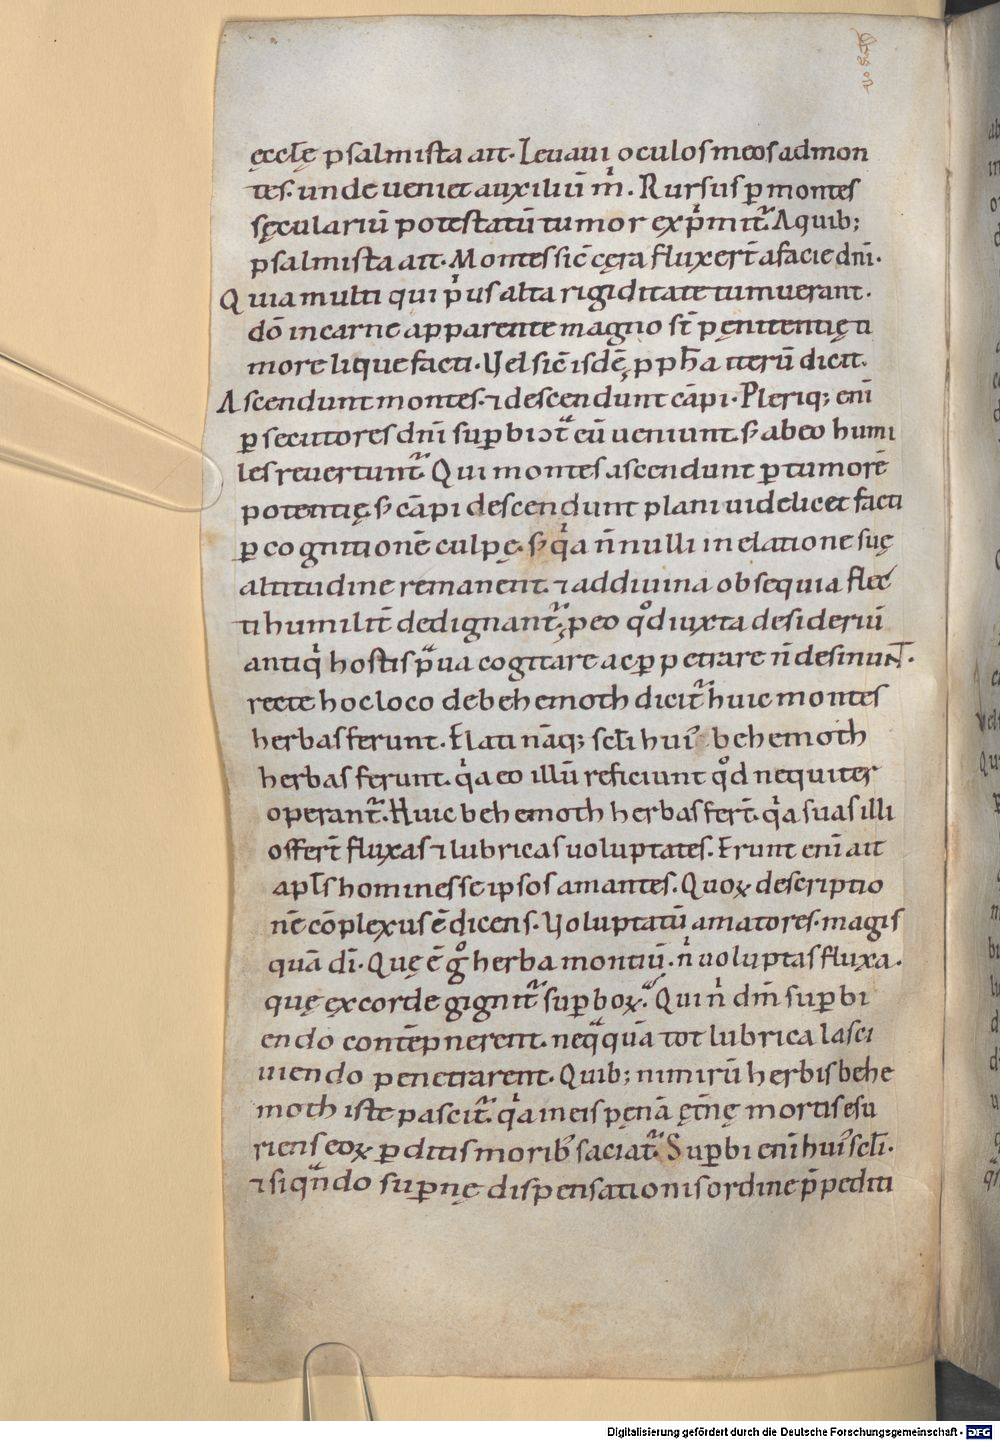 ęccłę psalmista ait. Leuaui oculos meos ad mon
tes. unde ueniet auxiliū m̍. Rursus ꝑ montes
sęculariū potestatū tumor exp̍mit᷑. A quib;
psalmista ait. Montes sic̄ cęra fluxer̄t a facie dn̄i.
Quia multi qui p̍us alta rigiditate tumuerant.
dō in carne apparente magno st̄ pęnitentię ti
more liquefacti. Vel sic̄ isdē ꝓph̄a iterū dicit.
Ascendunt montes. ⁊ descendunt cāpi. Pleriq; eni̅
ꝑsecutores dn̄i suꝑbi ↄt̄ eū ueniunt. s; ab eo humi
les reuertunt᷑. Qui montes ascendunt ꝑ tumorē
potentię. s; cāpi descendunt plani uidelicet facti
ꝑ cognitionē culpę. s; q̍a n̄nulli in elatione suę
altitudine remanent. ⁊ ad diuina obsequia flec
ti humilit̄ dedignant᷑. ꝓ eo qͦd iuxta desideriū
antiq̍ hostis pͣua cogitare ac ꝑpetrare n̄ desinuNT.
recte hoc loco de behemoth dicit᷑ huic montes
herbas ferunt. Elati nāq; scłi huiꝰ behemoth
herbas ferunt. q̍a eo illū reficiunt qͦd nequiter
operant᷑. Huic behemoth herbas fert̄. q̍a suas illi
offert̄ fluxas ⁊ lubricas uoluptates. Erunt eni̅ ait
apłs homines se ipsos amantes. Quoꝝ descriptio
nē cōplexus ē dicens. Voluptatū amatores. magis
quā dī. Quę ē gͦ herba montiū. n̍ uoluptas fluxa.
quę ex corde gignit᷑ suꝑboꝝ. Qui n̍ dm̄ suꝑbi
endo contēpnerent. neqͣquā tot lubrica lasci
uiendo penetrarent. Quib; nimirū herbis behe
moth iste pascit᷑. q̍a in eis pęnā ęt̄nę mortis esu
riens eoꝝ ꝑditis moribꝰ saciat᷑. Suꝑbi eni̅ huiꝰ scłi.
⁊ si qͣndo suꝑnę dispensationis ordine p̄pediti
Digitalisierung gefördert durch die Deutsche Forschungsgemeinschaft - DFG